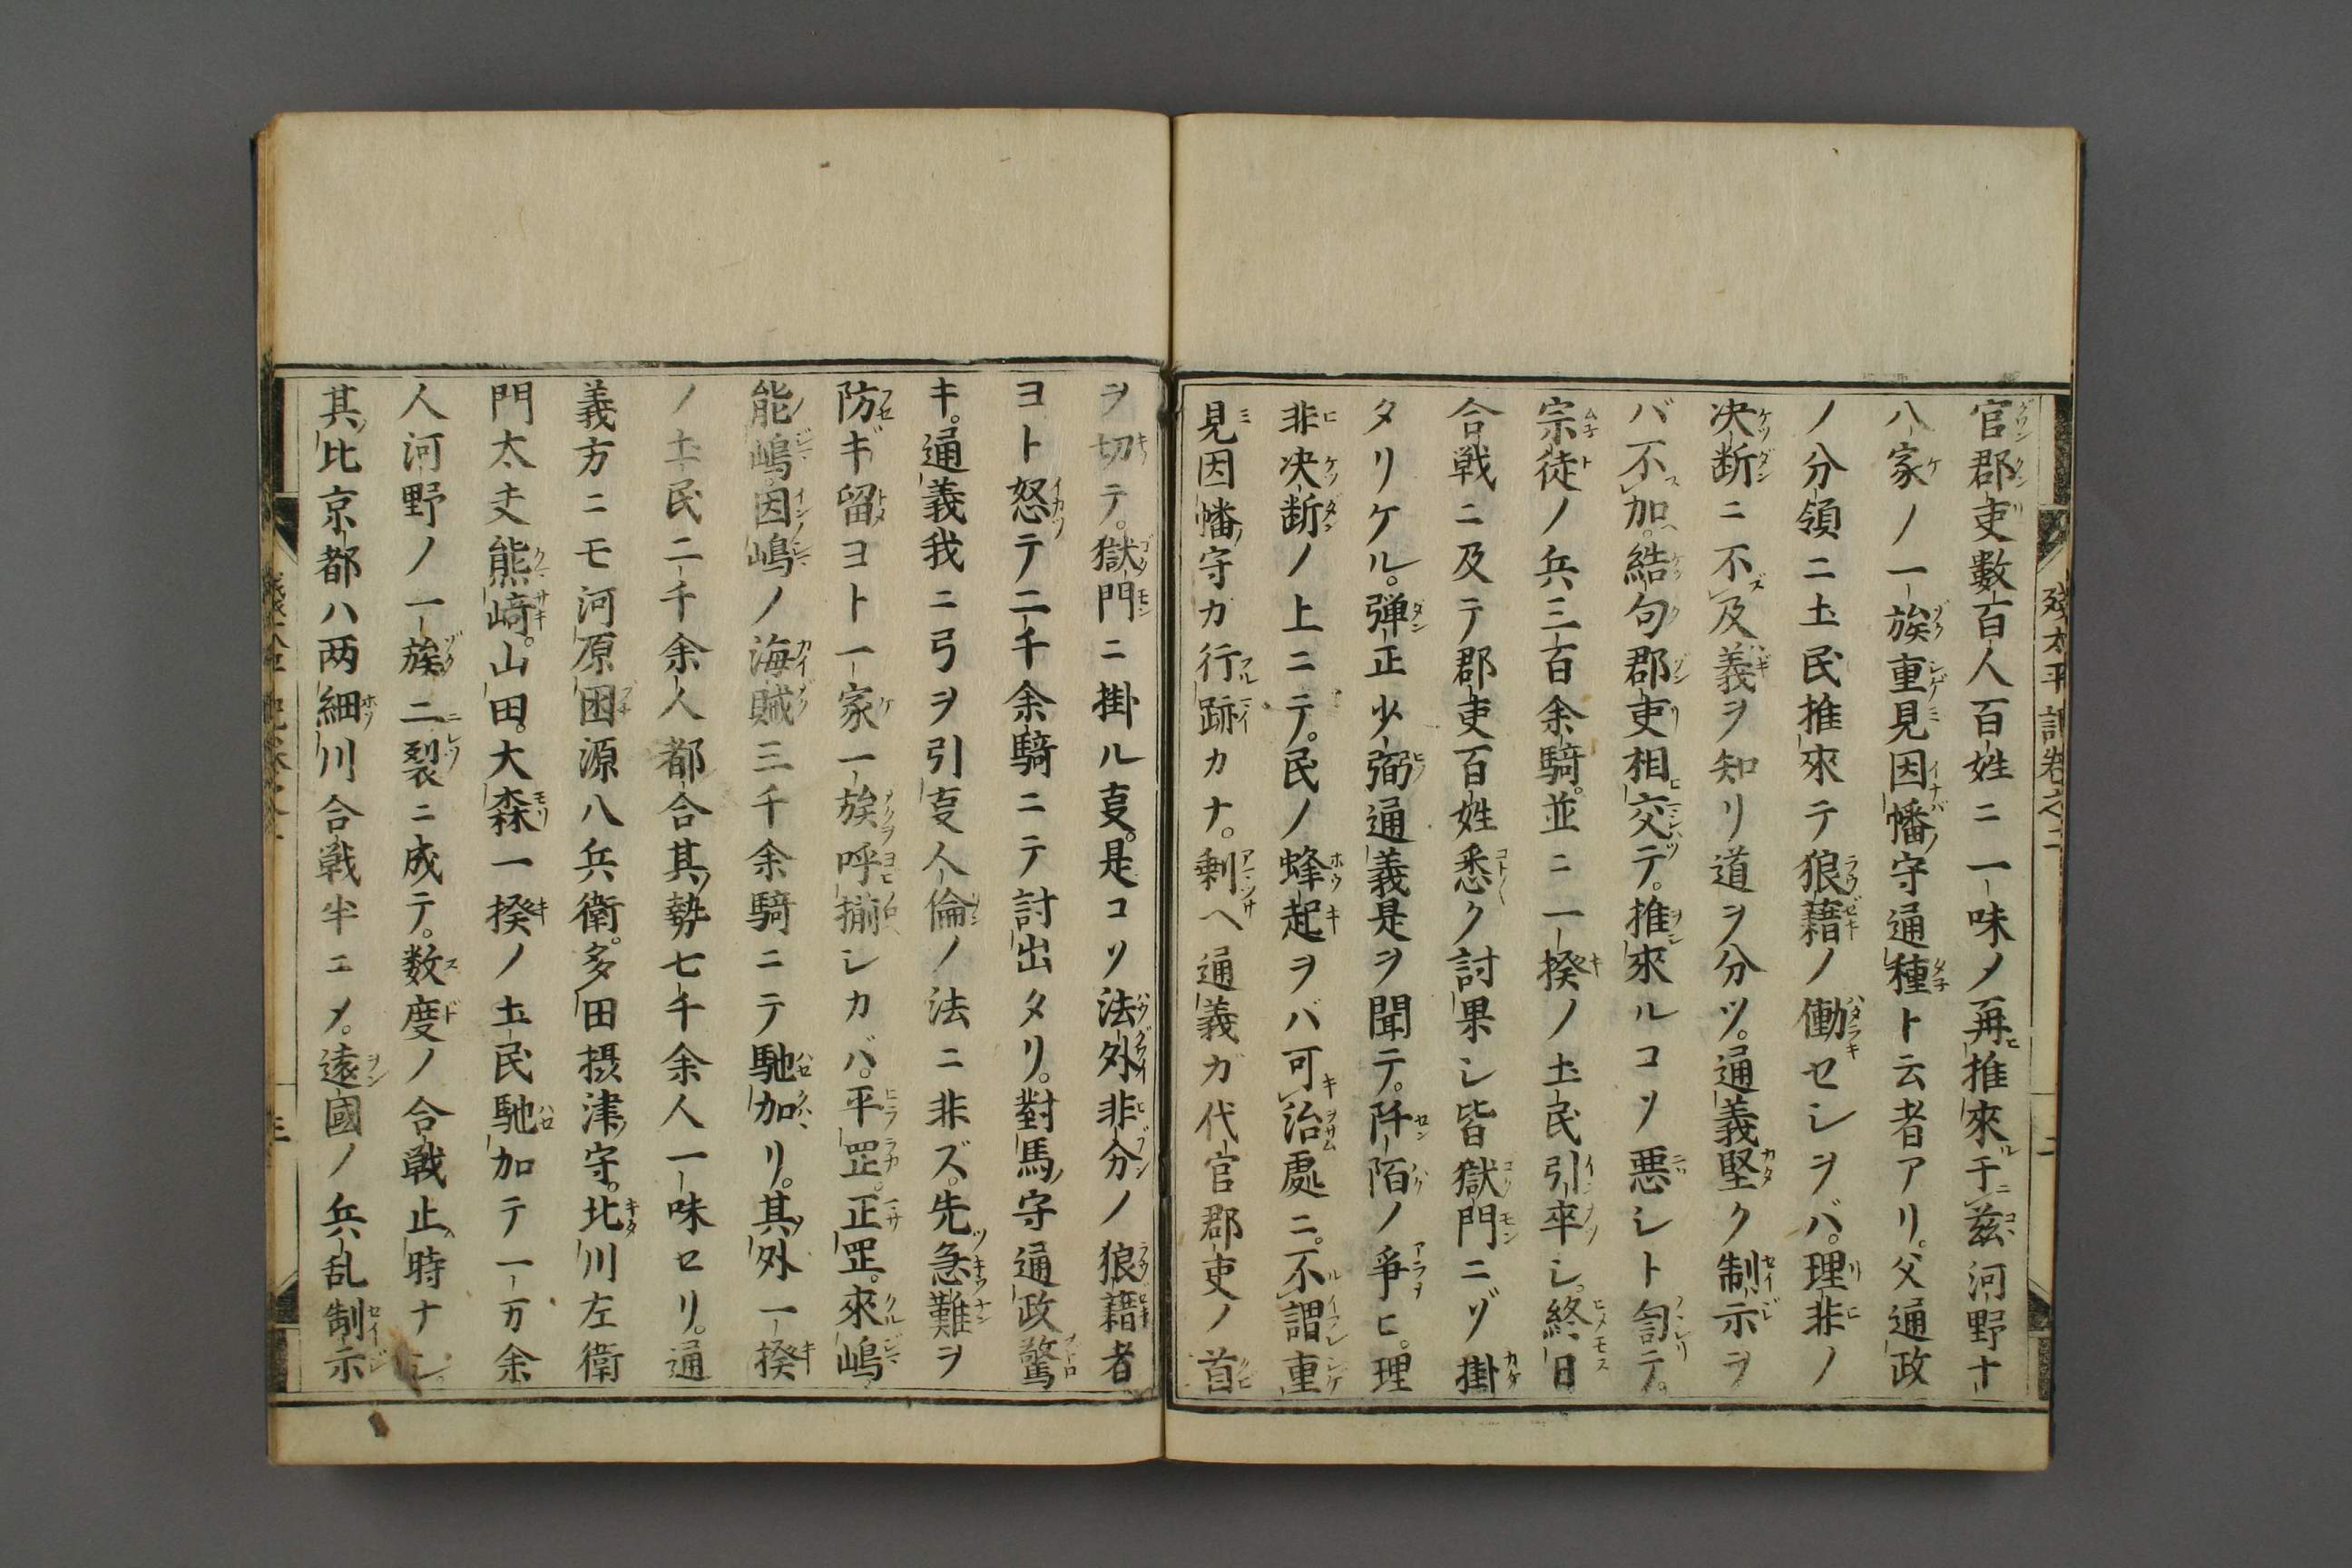 官郡吏數百人百姓ニ一味ノ再推來于茲河野十
八家ノ一族重見因幡守通種ト云者アリ。父通政
ノ分領ニ土民推來テ狼藉ノ働セシヲバ。理非ノ
决断ニ不及義ヲ知リ道ヲ分ツ。通義堅ク制示ヲ
バ不加。結句郡吏相交テ。推來ルコソ悪シト訇テ。
宗徒ノ兵三百余騎。並ニ一揆ノ土民引率シ。終日
合戦ニ及テ郡吏百姓悉ク討果シ皆獄門ニゾ掛
タリケル。弾正少弼通義是ヲ聞テ。阡陌ノ爭ヒ。理
非决断ノ上ニテ。民ノ蜂起ヲバ可治處ニ。不謂重
見因幡守ガ行跡カナ。剰ヘ通義ガ代官郡吏ノ首
ヲ切テ。獄門ニ掛ル㕝。是コソ法外非分ノ狼藉者
ヨト怒テ二千余騎ニテ討出タリ。對馬守通政驚
キ。通義我ニ弓ヲ引㕝人倫ノ法ニ非ズ。先急難ヲ
防ギ留ヨト一家一族呼揃シカバ。平罡。正罡。來嶋
能嶋。因嶋ノ海賊三千余騎ニテ馳加リ。其外一揆
ノ土民二千余人都合其勢七千余人一味セリ。通
義方ニモ河原囦源八兵衛。多田摂津守。北川左衛
門太夫熊﨑。山田。大森一揆ノ土民馳加テ一万余
人河野ノ一族二裂ニ成テ。数度ノ合戦止時ナシ。
其比京都ハ两細川合戦半ニメ。遠國ノ兵乱制示
残太平記卷之二
二
三